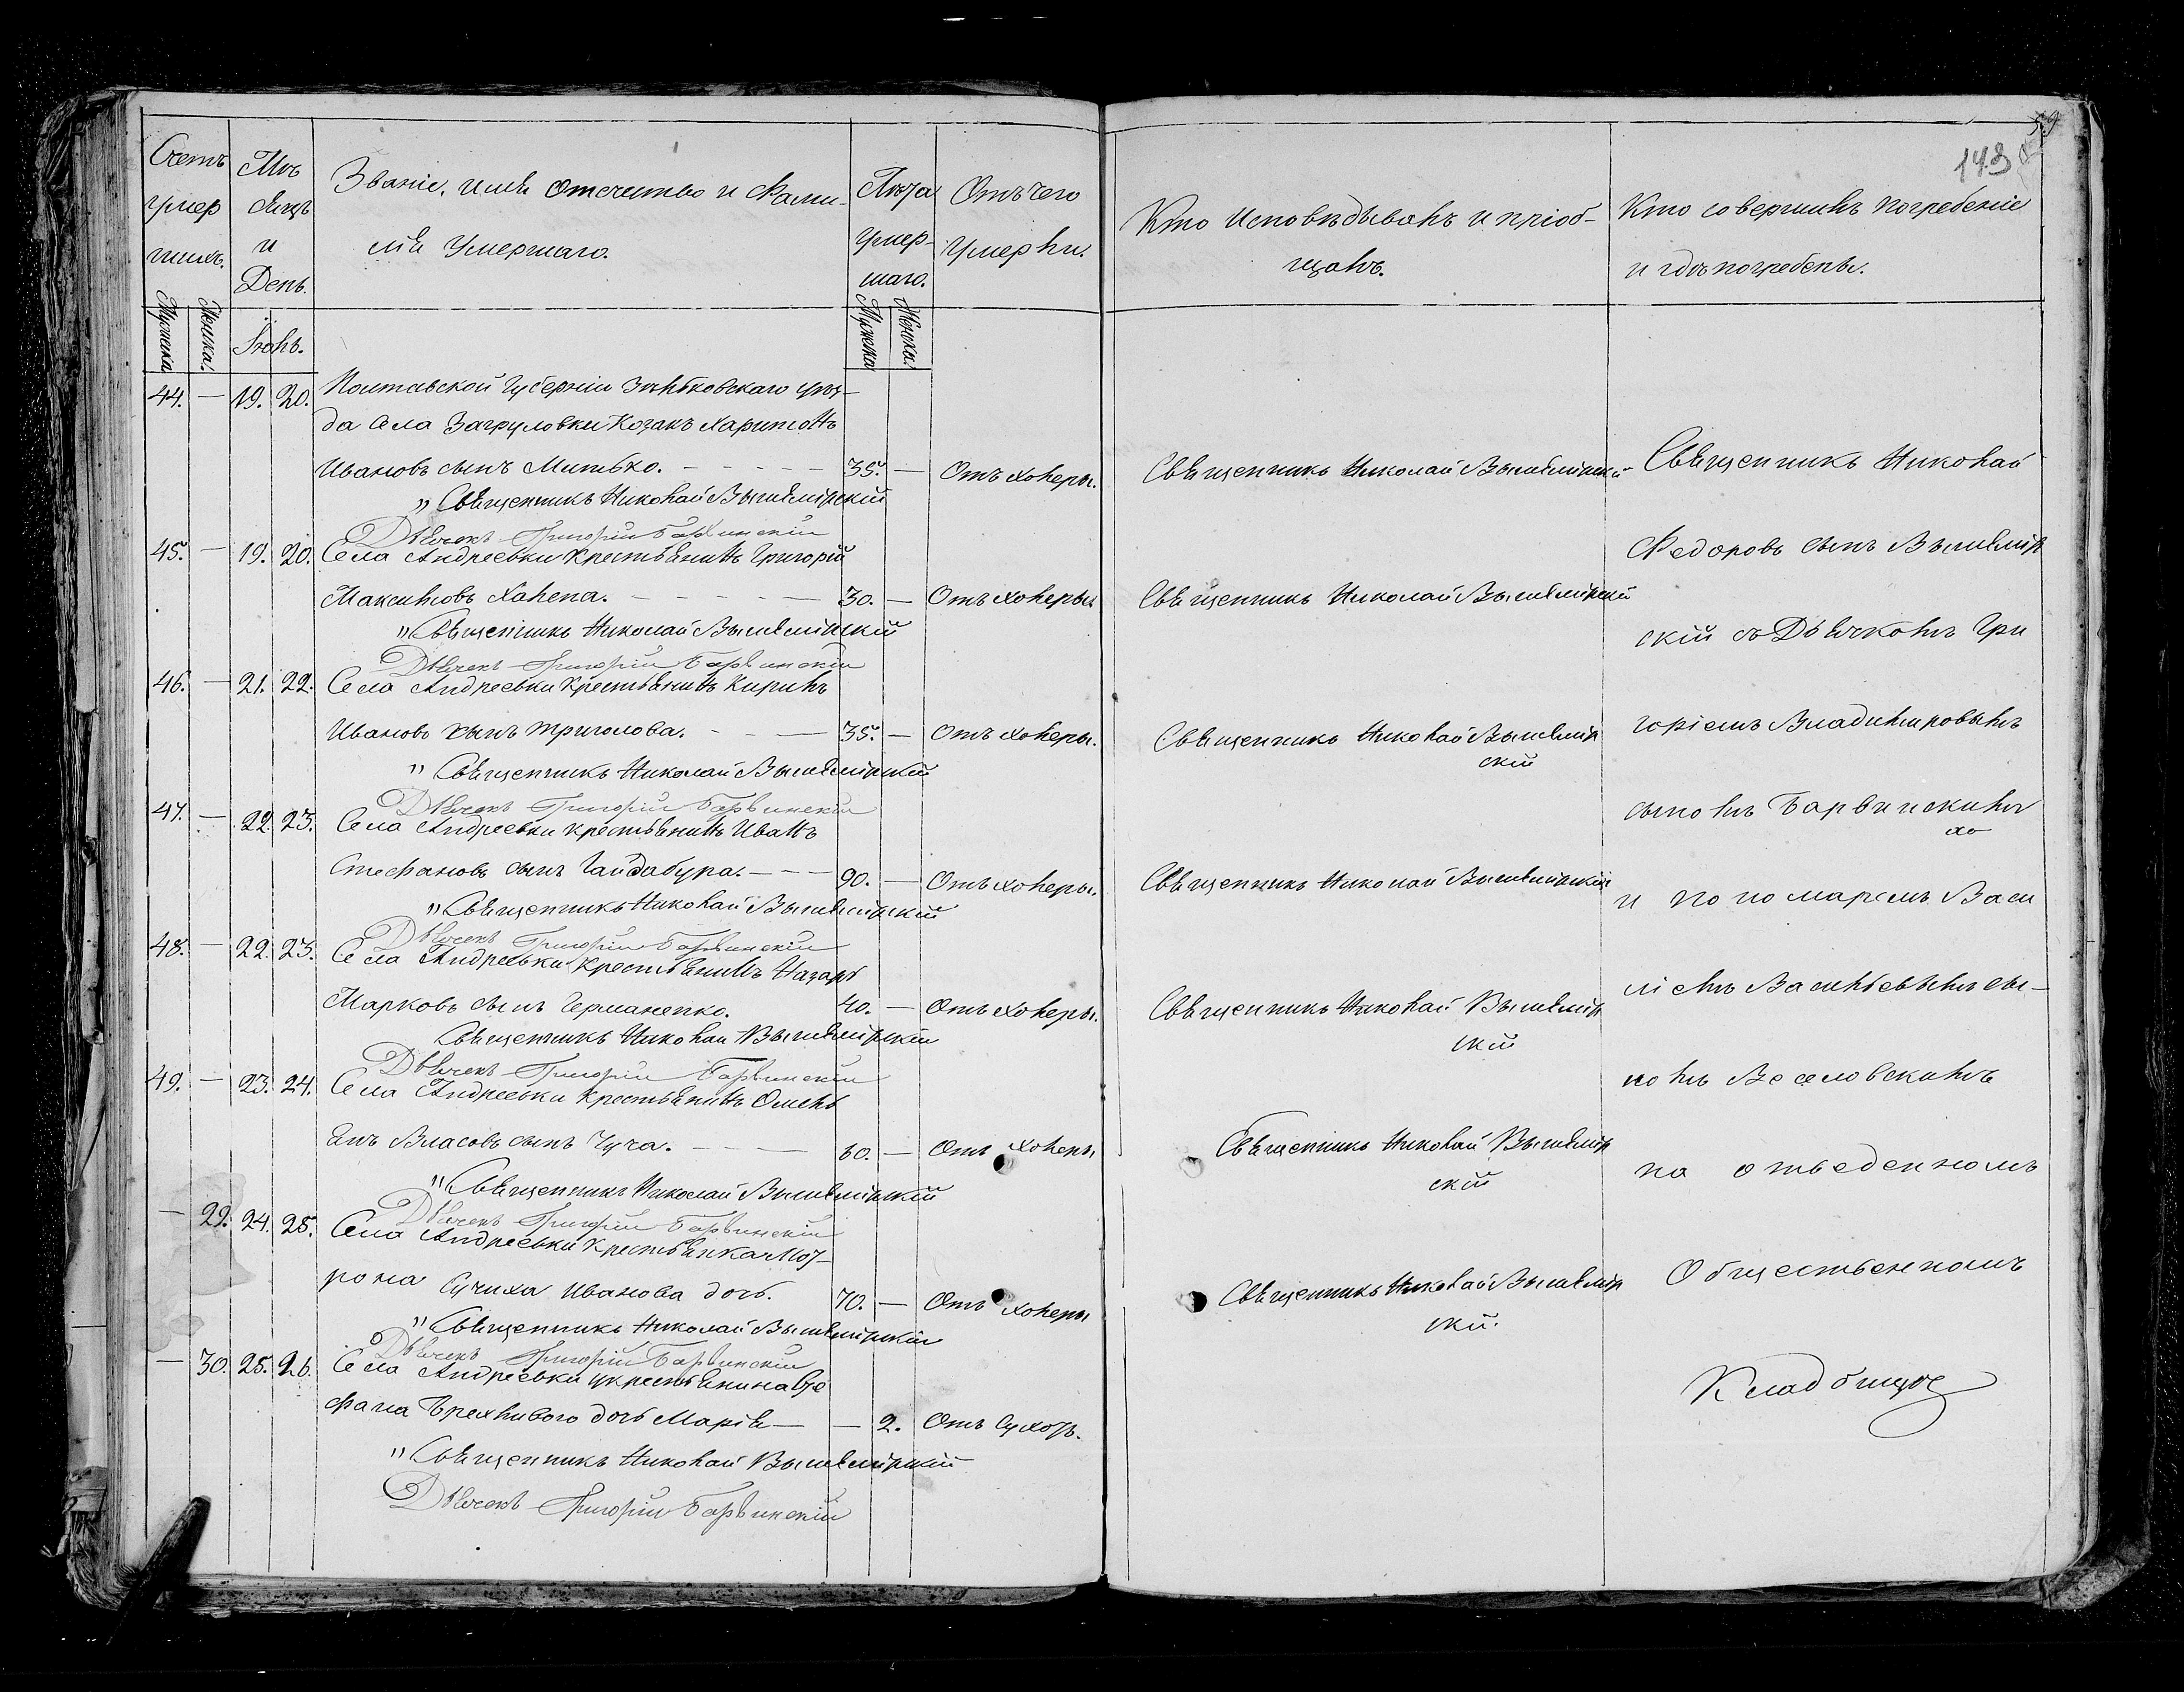 Счетъ умер шихъ.
Мужска
Женска.
Мѣ сяцъ и День.
Іюнь.
Званіе, имя отечество и Фами-
лія умершаго.
Лѣта умер- шаго.
Мужска
Женска.
Отъ чего умерли.
Кто исповѣдывалъ и пріоб-
щалъ.
Кто совершилъ погребеніе
и гдѣ погребены.
143
44. — 19. 20. Полтавской Губерніи Зѣньковскаго уѣз-
да села Загруловки Козакъ Харитонъ
Ивановъ сынъ Митько. — 35. — Отъ холеры. Священникъ Николай Вышемірскій
„Священникъ Николай Вышемірскій
Дьячекъ Григорій Барвинскій
45. — 19. 20. Села Андреевки крестьянинъ Григорій
Максимовъ Халепа. — 30. — Отъ холеры. Священникъ Николай Вышемірскій
„Священникъ Николай Вышемірскій
Дьячекъ Григорій Барвинскій
46. — 21. 22. Села Андреевки крестьянинъ Кирилъ
Ивановъ сынъ Триголова. — 35. — Отъ холеры. Священникъ Николай Вышемір
скій
„Священникъ Николай Вышемірскій
Дьячекъ Григорій Барвинскій
47. — 22. 23. Села Андреевки крестьянинъ Иванъ
Стефановъ сынъ Гайдабура. — 90. — Отъ холеры. Священникъ Николай Вышемірскій
„Священникъ Николай Вышемірскій
Дьячекъ Григорій Барвинскій
48. — 22. 23. Села Андреевки крестьянинъ Назаръ
Марковъ сынъ Германенко. 40. — Отъ холеры. Священникъ Николай Вышемір
скій
Священникъ Николай Вышемірскій
Дьячекъ Григорій Барвинскій
49. — 23. 24. Села Андреевки крестьянинъ Омель
янъ Власовъ сынъ Чуча. — 60. — Отъ холеры Священникъ Николай Вышемір
скій
„Священникъ Николай Вышемірскій
Дьячекъ Григорій Барвинскій
— 29. 24. 25. Села Андреевки крестьянка Мот-
рона Сучиха Иванова дочь. 70. — Отъ холеры Священникъ Николай Вышемір
скій.
„Священникъ Николай Вышемірскій
Дьячекъ Григорій Барвинскій
— 30. 25. 26. Села Андреевки крестьянина Сте
фана Брехливого дочь Марія — — 2. Отъ сухот.
„Священникъ Николай Вышемірскій
Дьячекъ Григорій Барвинскій
Священникъ Николай
Федоровъ сынъ Вышемір
скій съ Дьячкомъ Гри
горіемъ Владиміровымъ
сыномъ Барвинскимъ
и пономаремъ Васи
ліемъ Васильевымъ сы-
номъ Веселовскимъ
на отведенномъ
Общественномъ
Кладбище